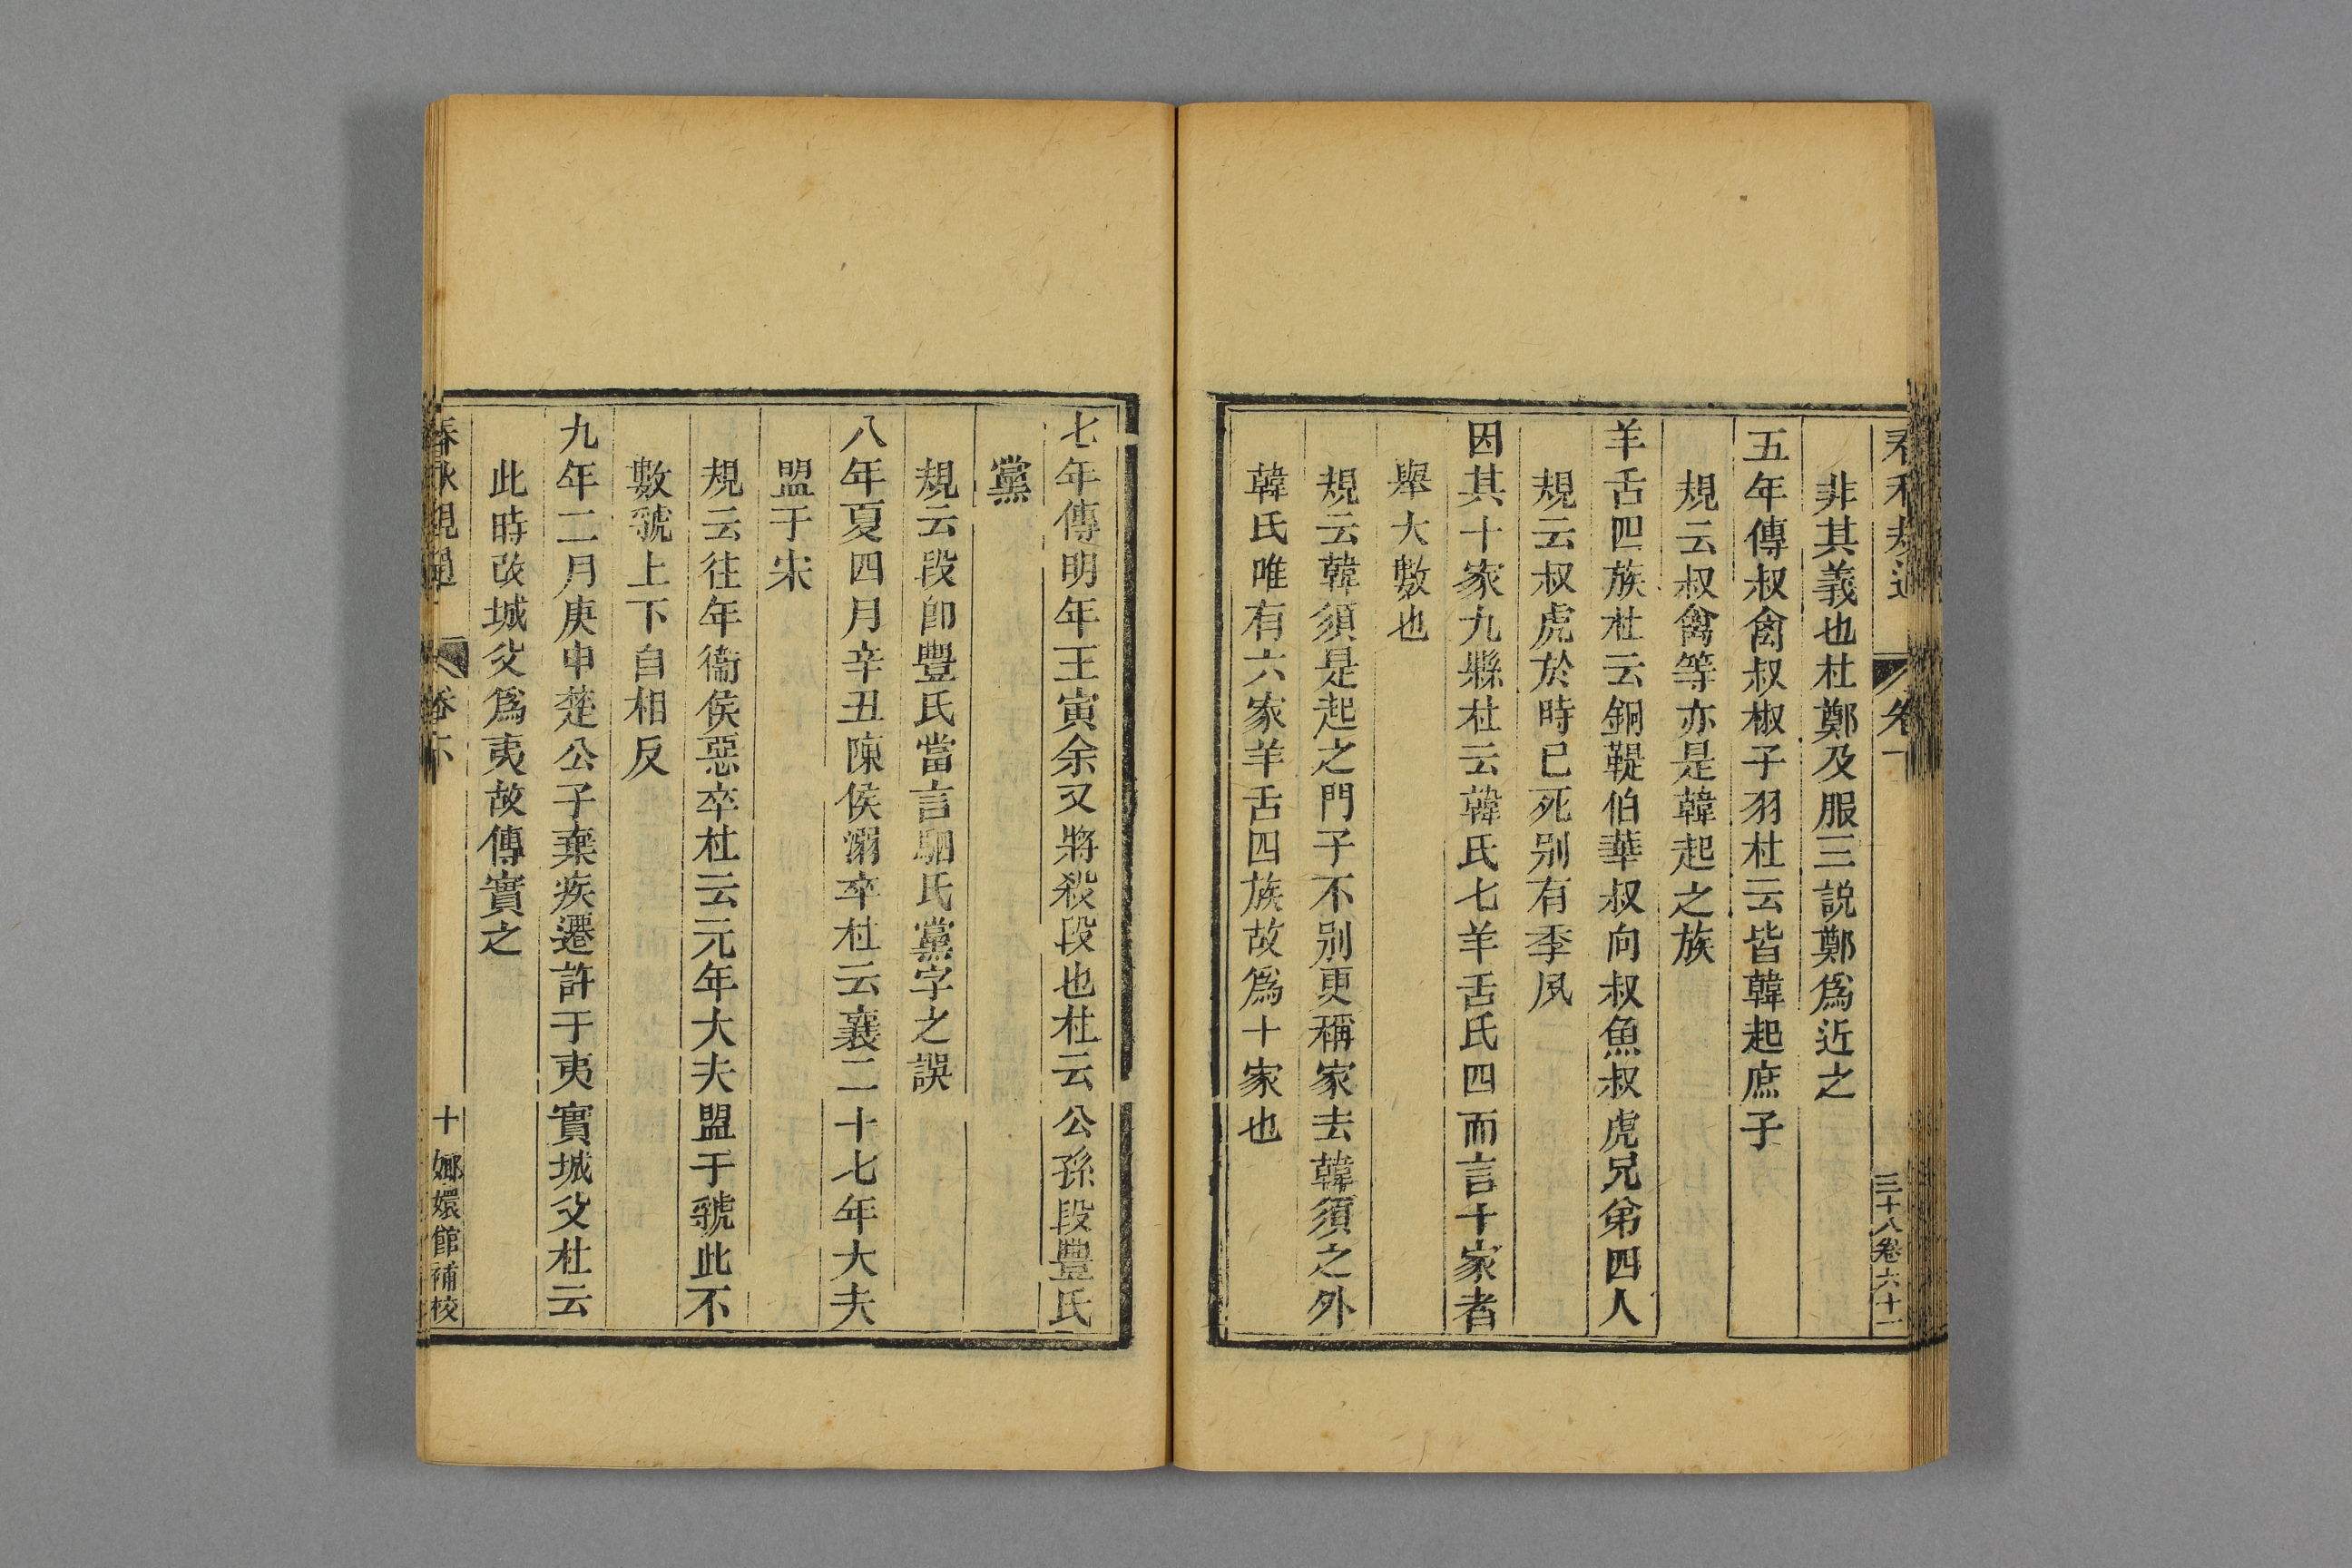 非其義也杜鄭及服三説鄭爲近之
五年傳叔禽叔椒子羽杜云皆韓起庶子
規云叔禽等亦是韓起之族
羊舌四族杜云銅鞮伯華叔向叔魚叔虎兄弟四人
規云叔虎於時已死别有季夙
因其十家九縣杜云韓氏七羊舌氏四而言十家者
舉大數也
規云韓須是起之門子不别更稱家去韓須之外
韓氏唯有六家羊舌四族故爲十家也
三十八卷六十一
七年傳明年壬寅余又將殺段也杜云公孫段豐氏
黨
規云段卽豐氏當言駟氏黨字之誤
八年夏四月辛丑陳侯溺卒杜云襄二十七年大夫
盟于宋
規云往年衞侯惡卒杜云元年大夫盟于虢此不
數虢上下自相反
九年二月庚申楚公子棄疾遷許于夷實城父杜云
此時改城父爲夷故傳實之
春秋規過 卷下 十 嫏嬛館補校